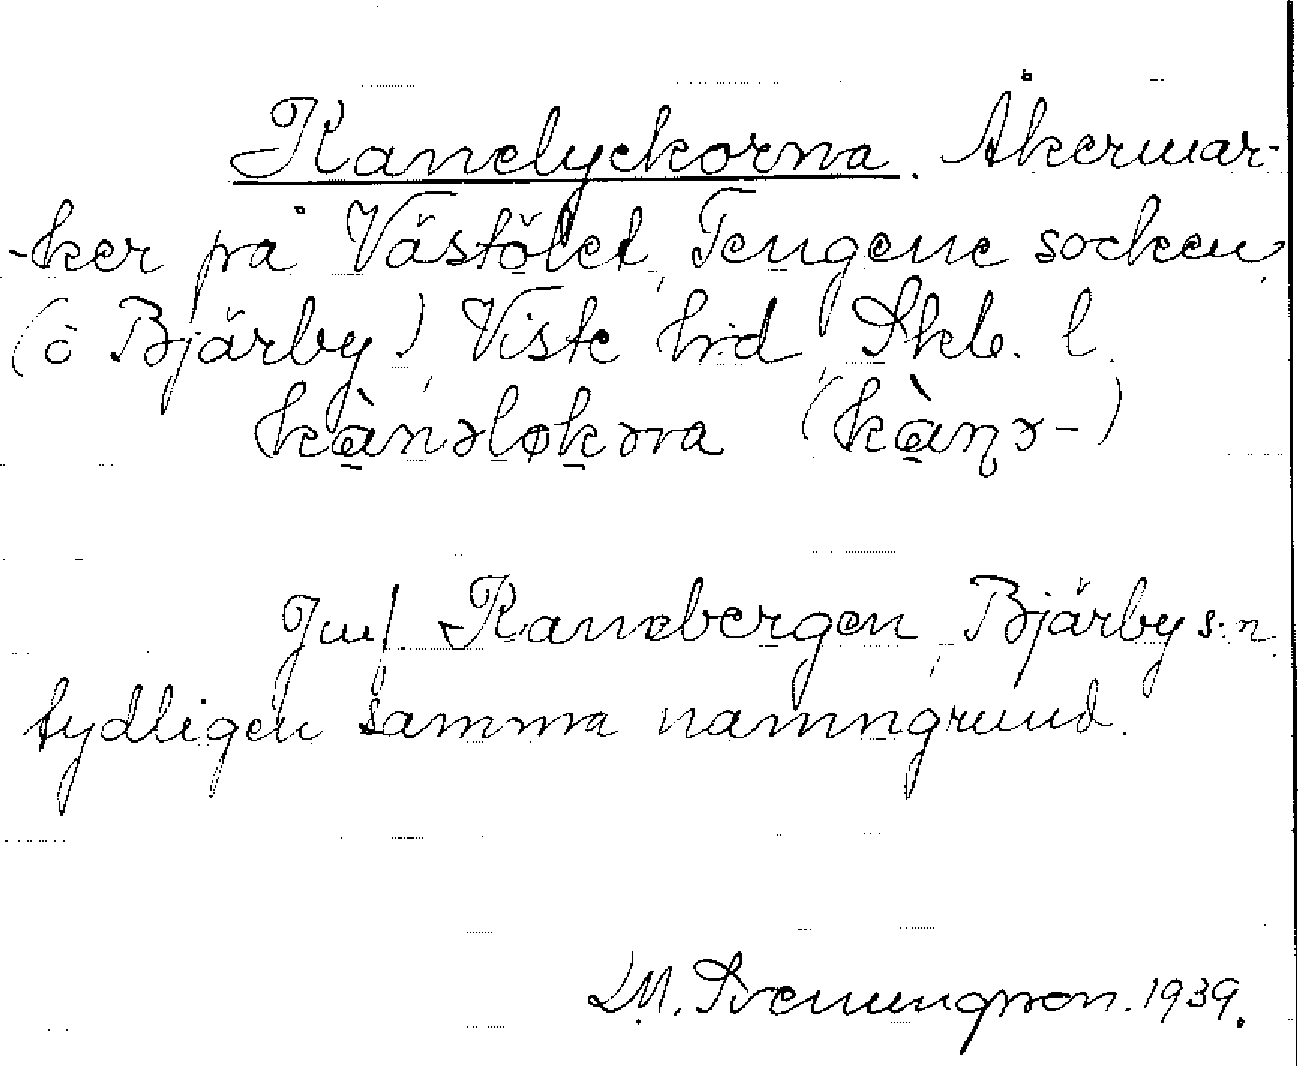 Kanelyckorna. Åkermar-
-ker på Västölet, Tengene socken,
(ö Bjärby), Viste hrd, Skb. l.
kànəløkəra (kàn̨ə-)
Jmf. Kanebergen, Bjärby s:n,
tydligen samma namngrund.
LM. Svenungsson. 1939.